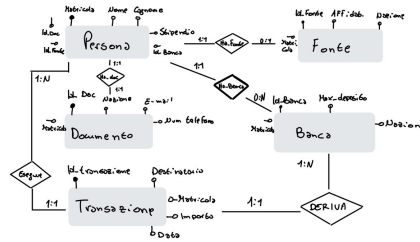 Matricola Nome Cognome
Id_Doc
Id_Fonte
Persona
Stipendio
Id_Banca
1:1
Ha_Fonte
0:1
Id_Fonte Aff:dab. Nazione
Matricola
Fonte
1:N
1:1
Ha_doc
1:1
1:1
Ha_Banca
0:N
Id_Doc Nazione E-mail
Matricola
Documento
Num telefono
Id_Banca Max_deposito
Matricola
Banca
Nazion
Esegue
1:1
Id_transazione Destinatario
Transazione
Matricola
Importo
Data
1:1
DERIVA
1:N